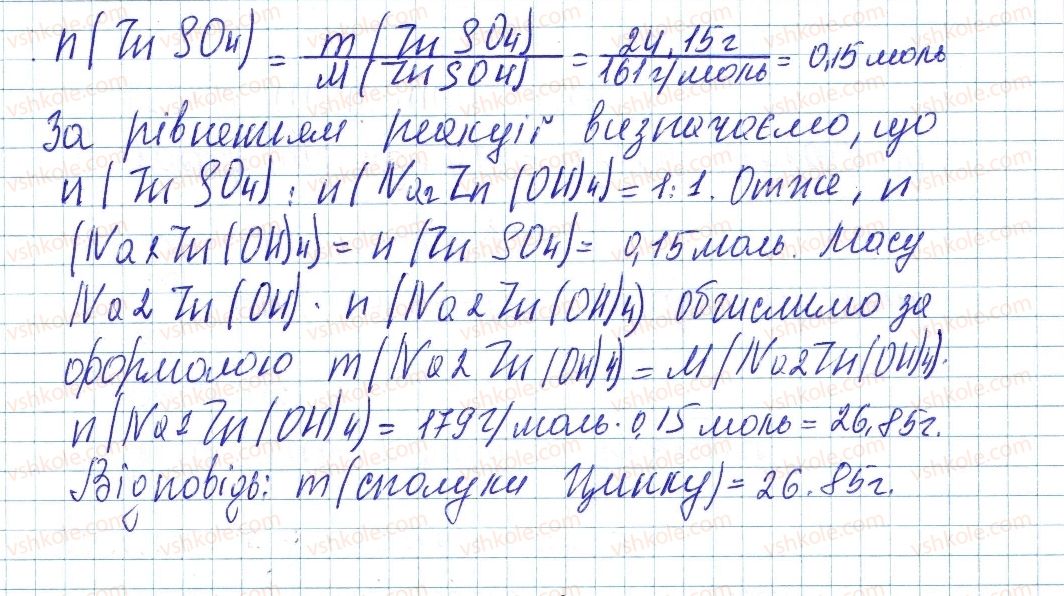 n(ZnSO4) = m(ZnSO4) / M(ZnSO4) = 24,15г / 161г/моль = 0,15 моль
За рівненням реакції визначаємо, що
n(ZnSO4) : n(Na2Zn(OH)4) = 1:1. Отже, n
(Na2Zn(OH)4) = n(ZnSO4) = 0,15 моль. Масу
Na2Zn(OH) · n(Na2Zn(OH)4) обчислимо за
формолою m(Na2Zn(OH)4) = M(Na2Zn(OH)4) ·
n(Na2Zn(OH)4) = 179г/моль · 0,15 моль = 26,85г.
Відповідь: m(сполуки Цинку) = 26.85г.